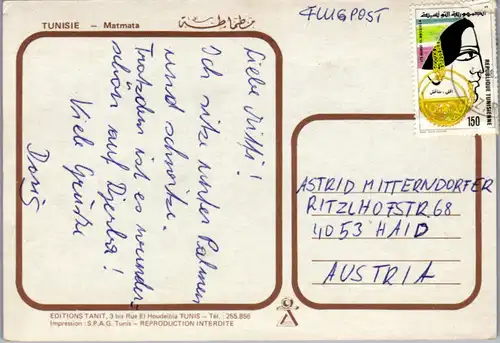 TUNISIE – Matmata
مطماطة
FLUGPOST
REPUBLIQUE TUNISIENNE
150
Liebe Mitti!
Ich sitze unter Palmen
und schwitze.
Trotzdem ist es wunder-
schön auf Djerba!
Viele Grüße
Doris
ASTRID MITTERNDORFER
RITZLHOFSTR. 68
4053 HAID
AUSTRIA
EDITIONS TANIT, 3 bis Rue El Houdeibia TUNIS – Tél. : 255.856
Impression : S.P.A.G. Tunis – REPRODUCTION INTERDITE